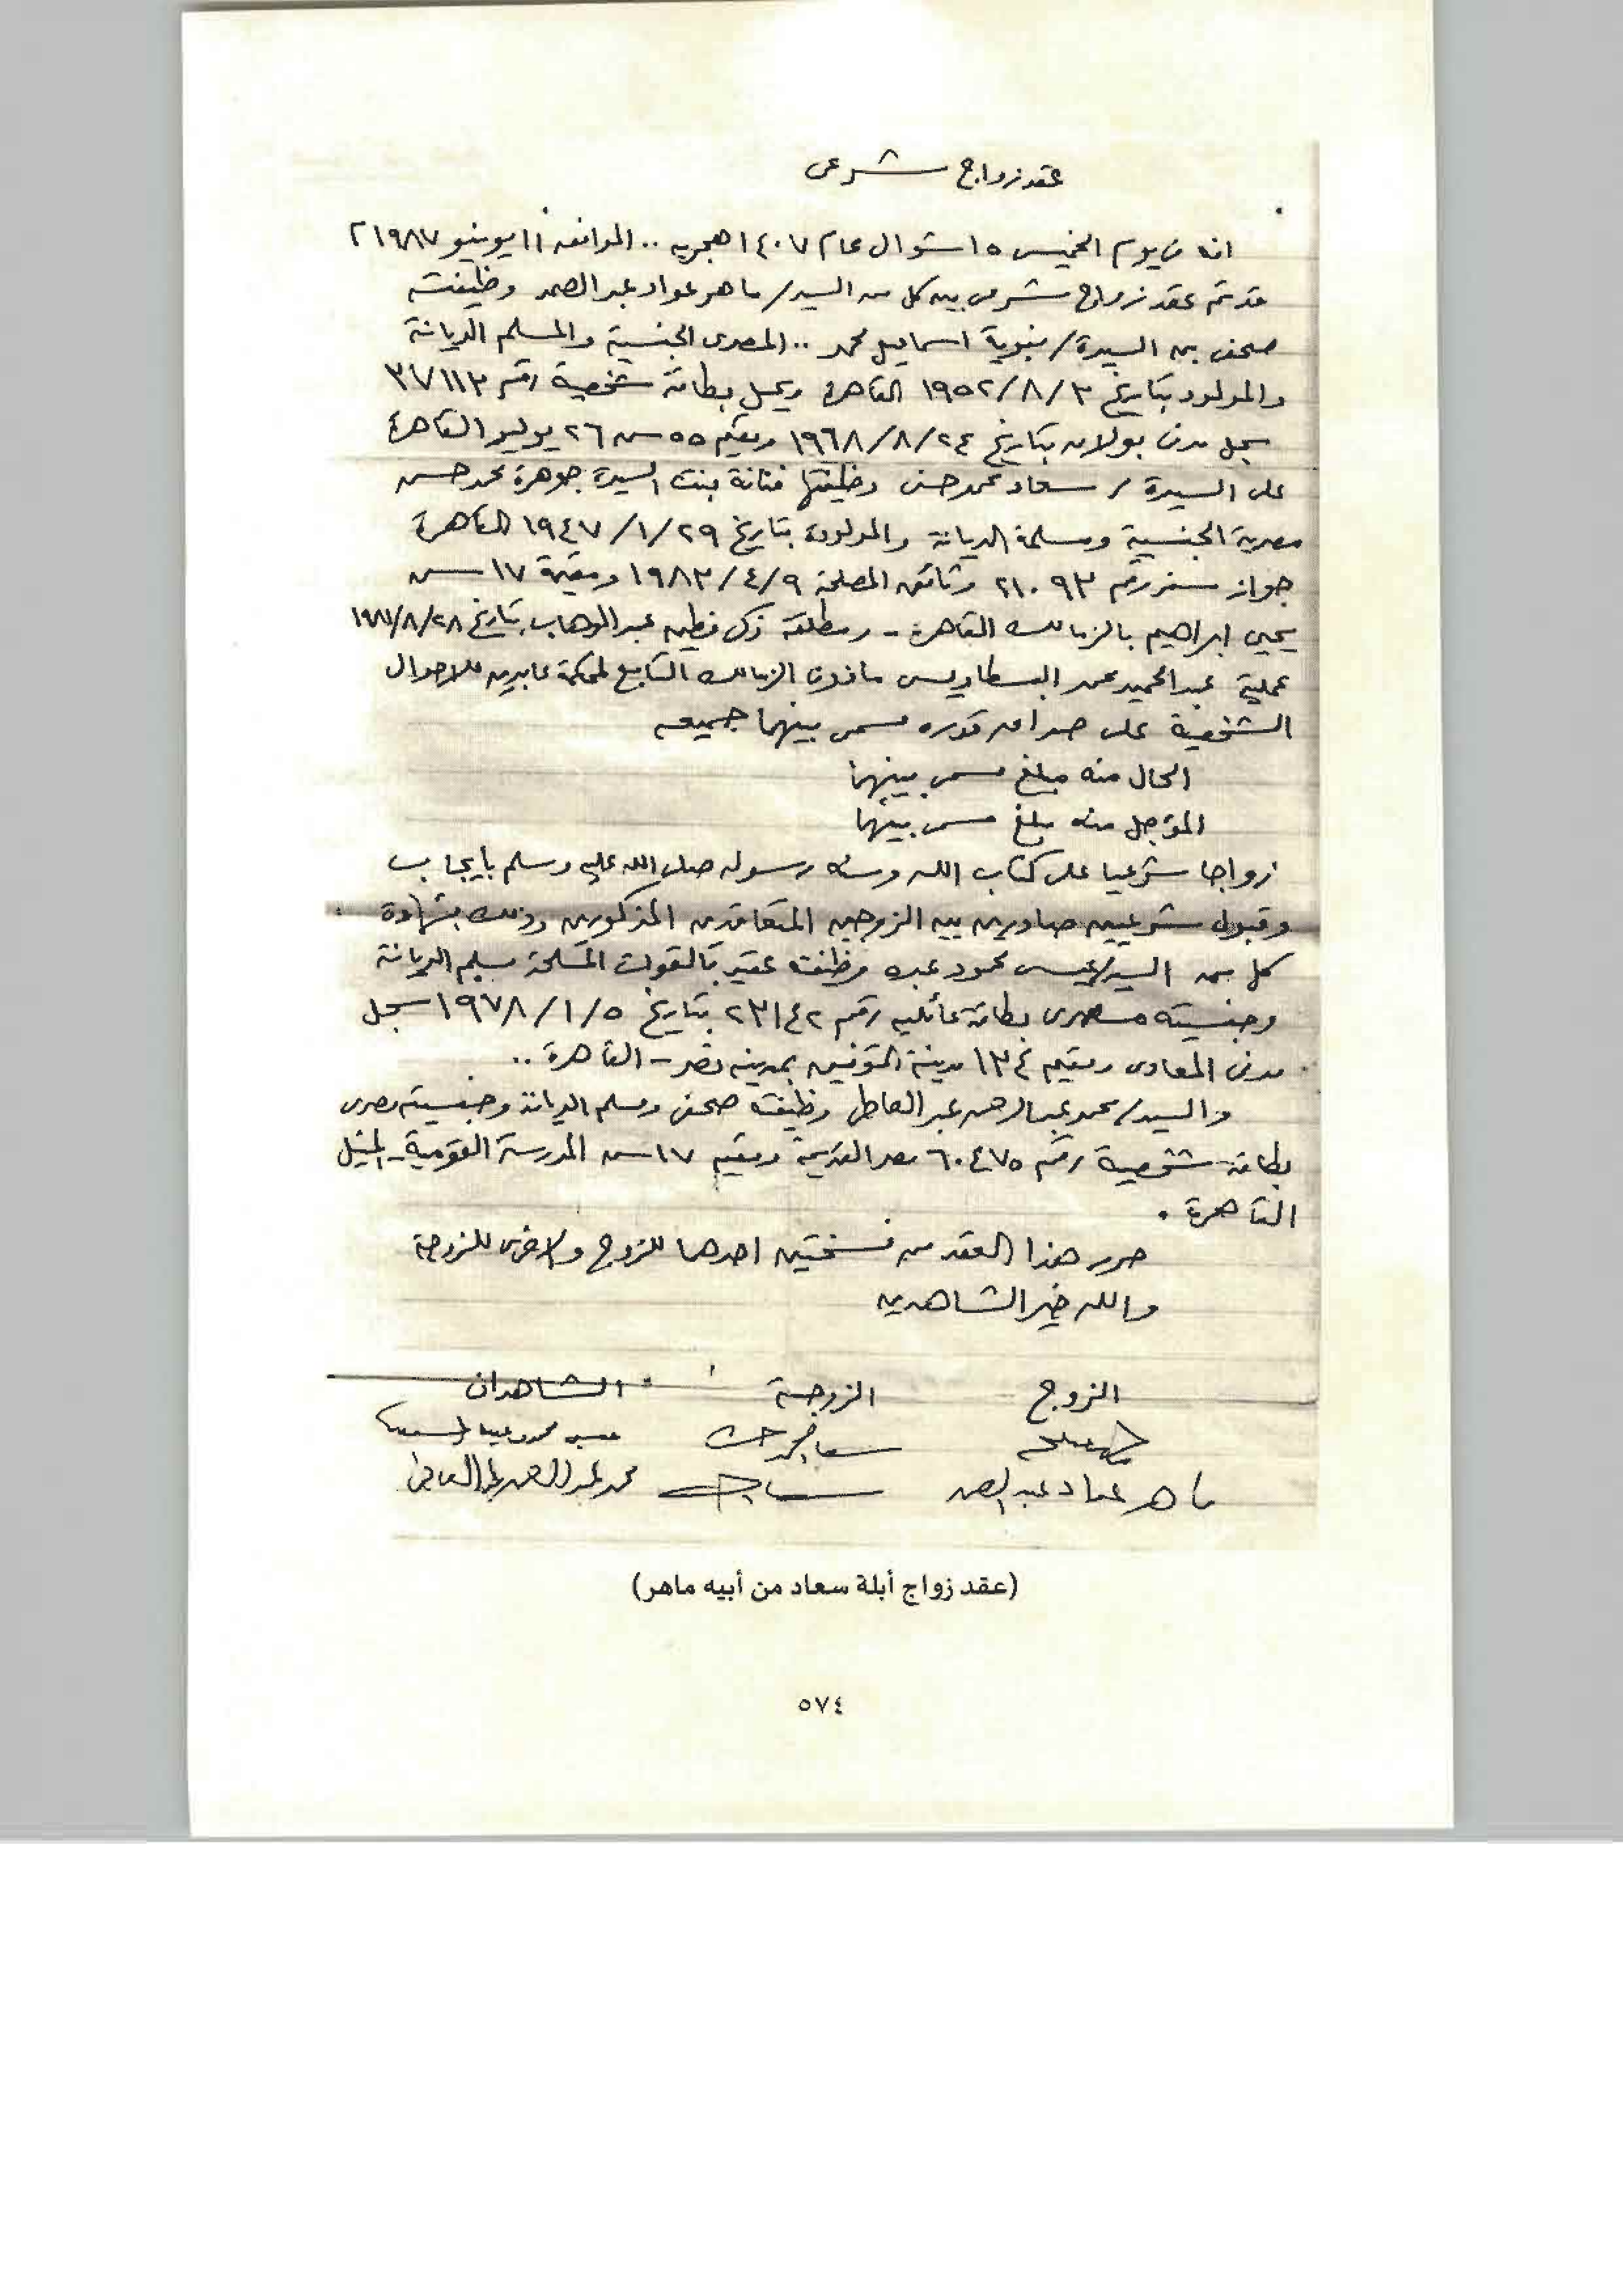 عقد زواج شرعى
انه فى يوم الخميس ١٥ شوال عام ١٤٠٧ هجريه .. الموافق ١١ يونيو ١٩٨٧ م
قد تم عقد زواج شرعى بين كل من السيد / ماهر عواد عبد الصمد وظيفته
صحفى بن السيدة / نبوية اسماعيل محمد .. المصرى الجنسية والمسلم الديانة
والمولود بتاريخ ٣ / ٨ / ١٩٥٢ القاهرة ويحمل بطاقة شخصية رقم ٣٧١١٣
سجل مدنى بولاق بتاريخ ٢٤ / ٨ / ١٩٦٨ ومقيم ٥٥ ش ٢٦ يوليو القاهرة
على السيدة / سعاد محمد حسنى وظيفتها فنانة بنت السيدة جوهرة محمد حسن
مصرية الجنسية ومسلمة الديانة والمولودة بتاريخ ٢٩ / ١ / ١٩٤٧ القاهرة
جواز سفر رقم ٢١٠٩٣ وثائق المصلحة ٩ / ٤ / ١٩٨٣ ومقيمة ١٧ ش
يحيى ابراهيم بالزمالك القاهرة - ومطلقة زكى فطين عبد الوهاب بتاريخ ٢٨ / ٨ /
عملية عبد الحميد محمد البسطاويسى ماذون الزمالك التابع لمحكمة عابدين للاحوال
الشخصية على صداق قدره مسمى بينهما جميعه
الحال منه مبلغ مسمى بينهما
المؤجل منه مبلغ مسمى بينهما
زواجا شرعيا على كتاب الله وسنة رسوله صلى الله عليه وسلم بايجاب
وقبول شرعيين صادرين بين الزوجين المتعاقدين المذكورين وذلك بشهادة
كل من السيد / عيسى محمود عبده وظيفته عقيد بالقوات المسلحة مسلم الديانة
وجنسيته مصرى بطاقة عائليه رقم ٢٣١٤٢ بتاريخ ٥ / ١ / ١٩٧٨ سجل
مدنى المعادى ومقيم ١٣٤ مدينة التوفيق بمدينه نصر - القاهرة ..
والسيد / محمد عبد الرحمن عبد العاطى وظيفته صحفى ومسلم الديانة وجنسيته مصرى
بطاقة شخصية رقم ٦٠٤٧٥ مصر القديمة ومقيم ١٧ ش المدرسة القومية - المنيل
القاهرة .
حرر هذا العقد من نسختين احدها للزوج والاخرى للزوجة
والله خير الشاهدين
الزوج الزوجة الشاهدان
ماهر عواد عبد الصمد
(عقد زواج أبلة سعاد من أبيه ماهر)
٥٧٤